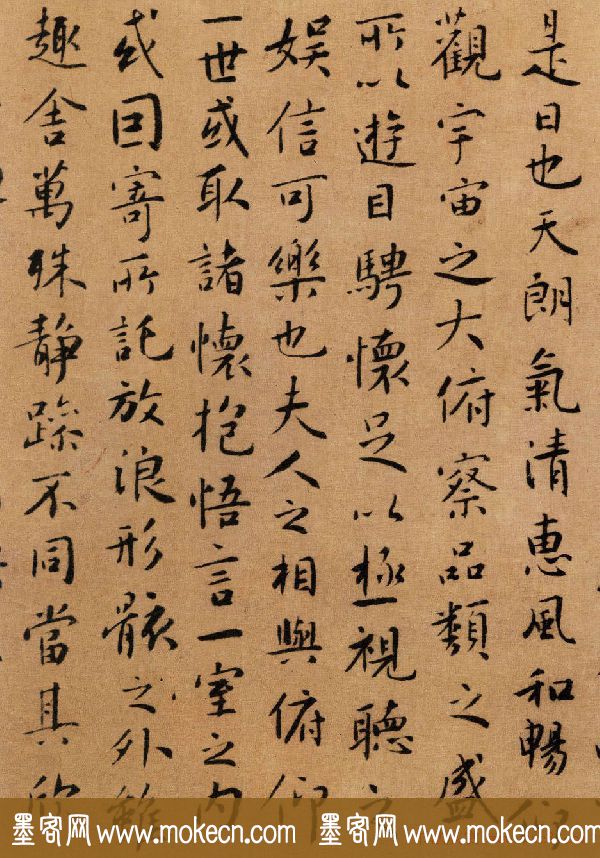 是日也天朗氣清惠風和暢仰
觀宇宙之大俯察品類之盛
所以遊目騁懷足以極視聽之
娛信可樂也夫人之相與俯仰
一世或取諸懷抱悟言一室之内
或因寄所託放浪形骸之外雖
趣舍萬殊静躁不同當其欣
墨客网 www.mokecn.com 墨客网 www.mokecn.com